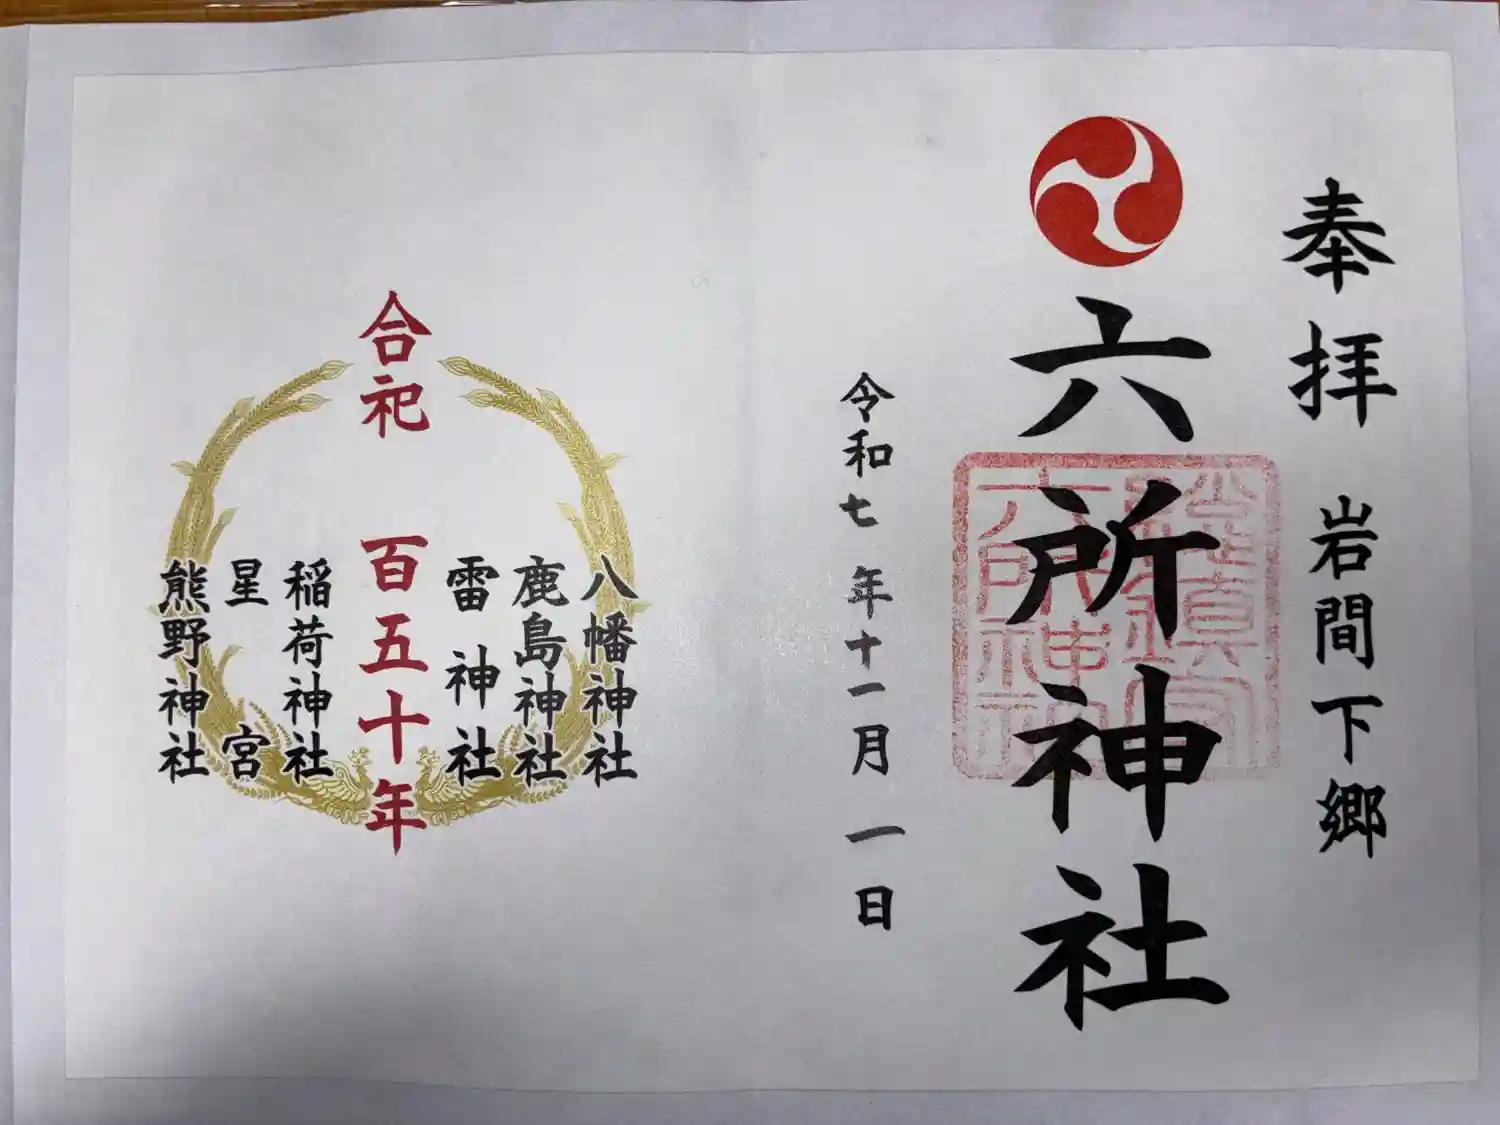 奉拝 岩間下郷
六所神社
令和七年十一月一日
合祀 百五十年
八幡神社
鹿島神社
雷神社
稲荷神社
星宮
熊野神社